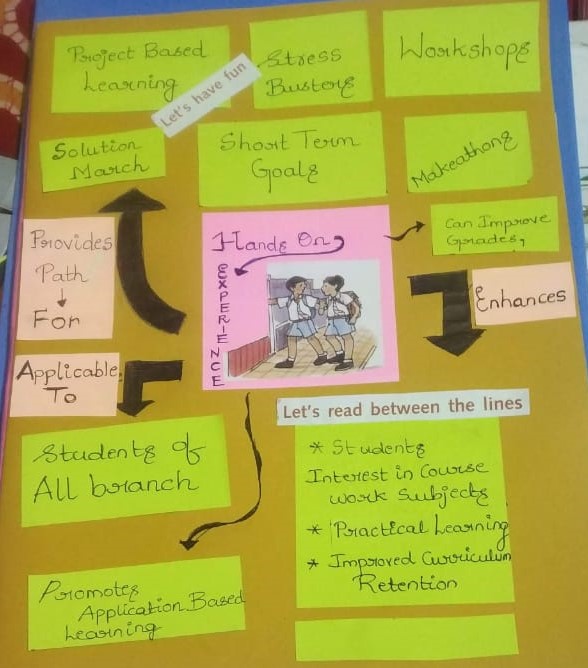 Project Based
Learning
Let's have fun
Stress
Busters
Workshops
Solution
March
Short Term
Goals
Makeathons
Provides
Path
↓
For
Hands On
EXPERIENCE
Can Improve
Grades,
Enhances
Applicable
To
Let's read between the lines
Students of
All branch
* Students
Interest in Course
work Subjects
* Practical Learning
* Improved Curriculum
Retention
Promotes
Application Based
Learning